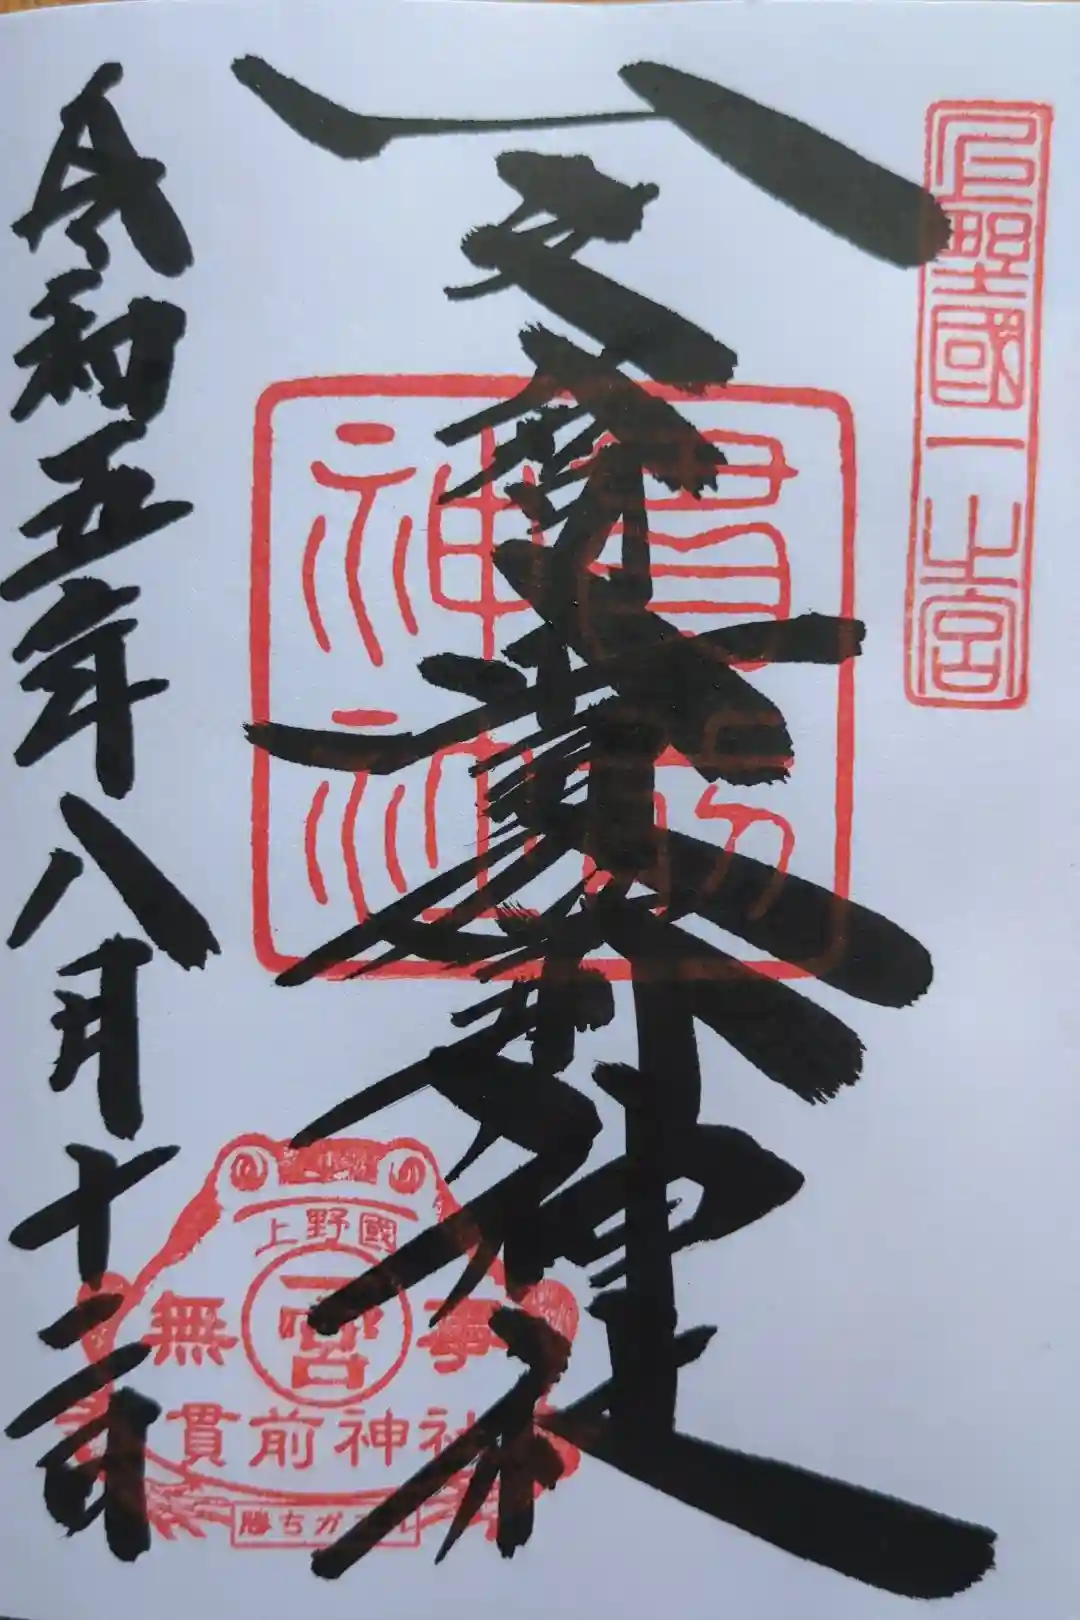 上野國一之宮
一之宮貫前神社
貫前
神社
令和五年八月十二日
上野國
一宮
無事
貫前神社
勝ちガエル